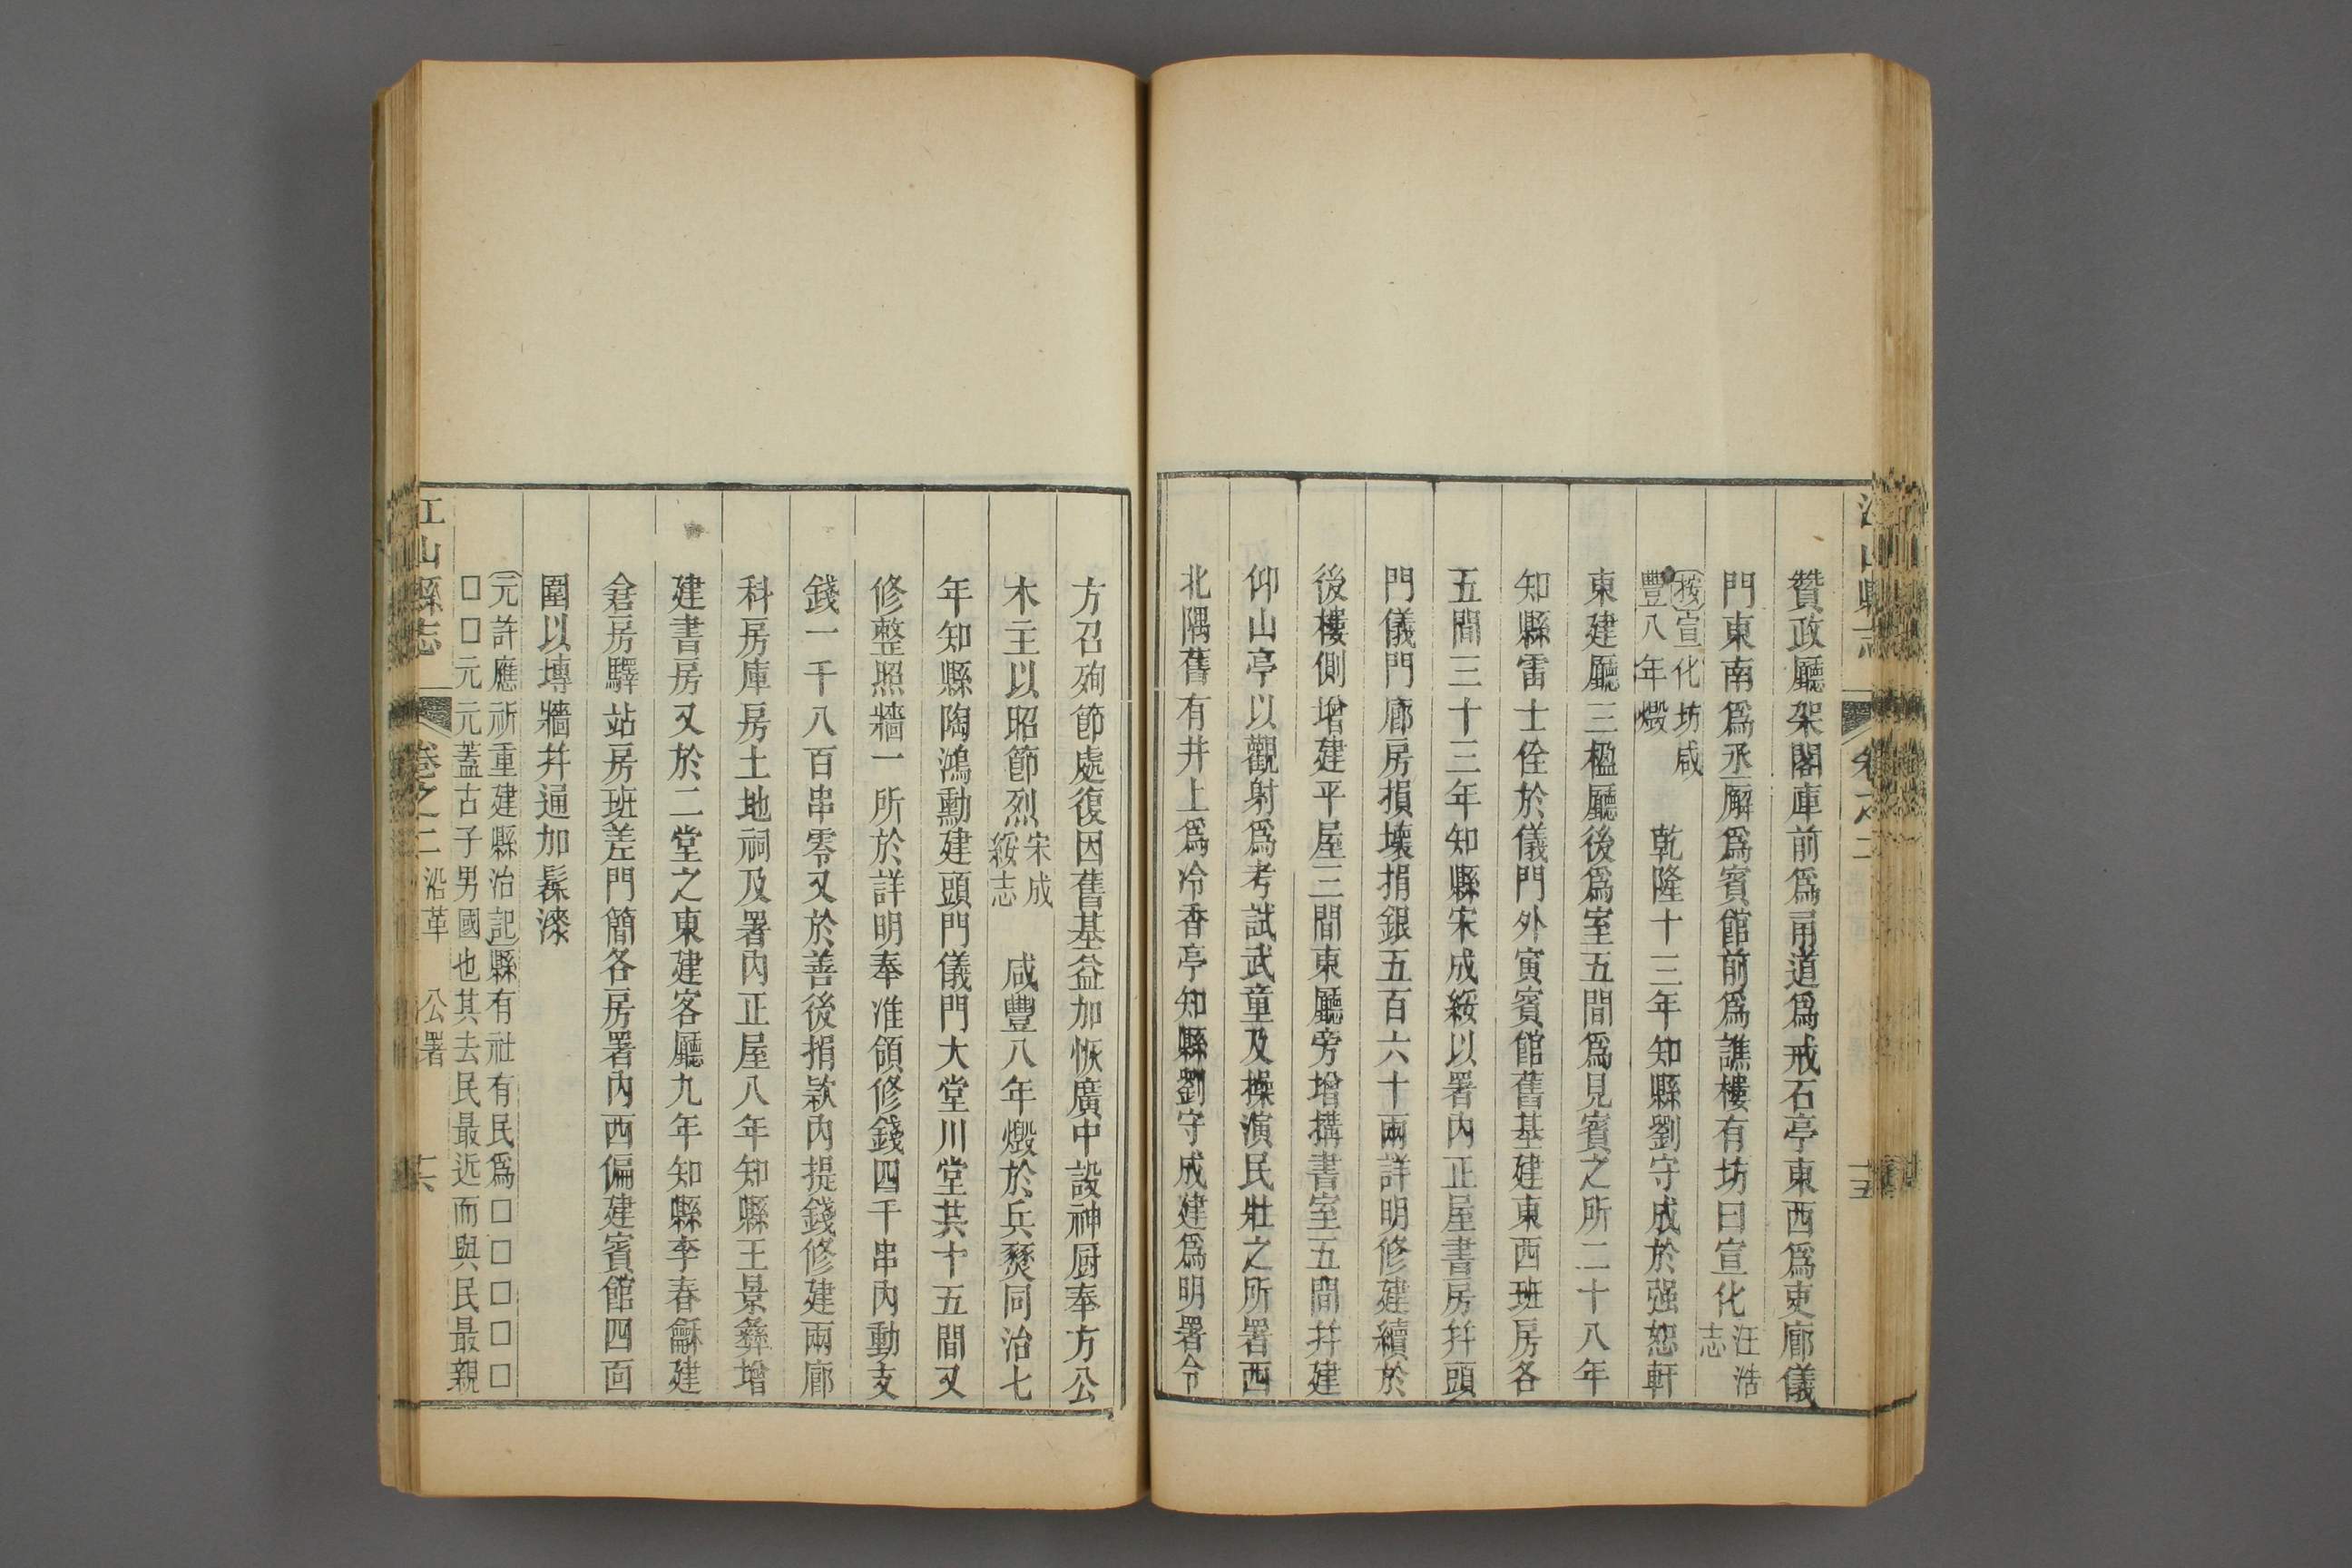 贊政廳架閣庫前爲甬道爲戒石亭東西爲吏廊儀
門東南爲丞廨爲賓館前爲譙樓有坊曰宣化汪浩
志
按宣化坊咸
豐八年燬
乾隆十三年知縣劉守成於强恕軒
東建廳三楹廳後爲室五間爲見賓之所二十八年
知縣雷士佺於儀門外寅賓館舊基建東西班房各
五間三十三年知縣宋成綏以署內正屋書房幷頭
門儀門廊房損壞捐銀五百六十兩詳明修建續於
後樓側增建平屋三間東廳旁增搆書室五間幷建
仰山亭以觀射爲考試武童及操演民壯之所署西
北隅舊有井上爲冷香亭知縣劉守成建爲明署令
方召殉節處復因舊基益加恢廣中設神厨奉方公
木主以昭節烈
宋成
綏志
咸豐八年燬於兵燹同治七
年知縣陶鴻勳建頭門儀門大堂川堂共十五間又
修整照牆一所於詳明奉准領修錢四千串內動支
錢一千八百串零又於善後捐款內提錢修建兩廊
科房庫房土地祠及署內正屋八年知縣王景彝增
建書房又於二堂之東建客廳九年知縣李春龢建
倉房驛站房班差門簡各房署內西偏建賓館四面
圍以塼牆幷通加髹漆
元許應祈重建縣治記縣有社有民爲□□□□□
□□元元蓋古子男國也其去民最近而與民最親
江山縣志 卷之二 沿革 公署 十六